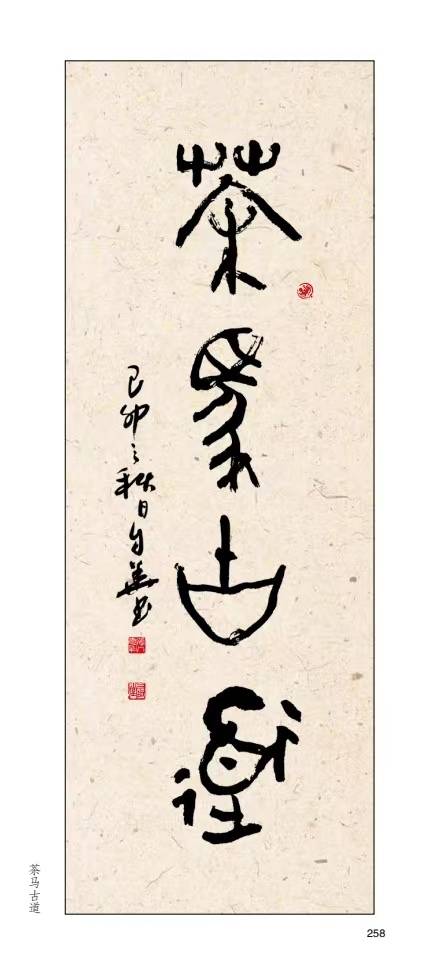 茶馬古道
己卯之秋日自書
茶马古道
258